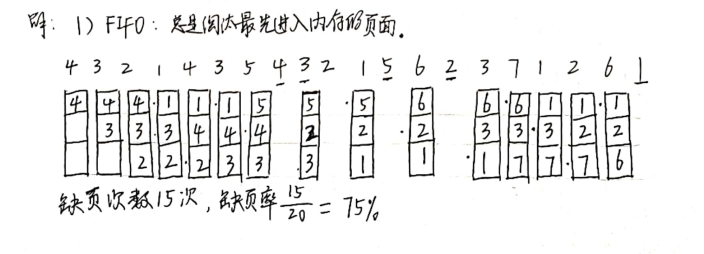 解: 1) FIFO: 总是淘汰最先进入内存的页面.
4 3 2 1 4 3 5 4 3 2 1 5 6 2 3 7 1 2 6 1
4 4 4 1 1 1 5 5 5 6 6 6 1 1 1
3 3 3 4 4 4 2 2 2 3 3 3 2 2
2 2 2 3 3 3 1 1 1 7 7 7 6
缺页次数15次, 缺页率 15/20 = 75%